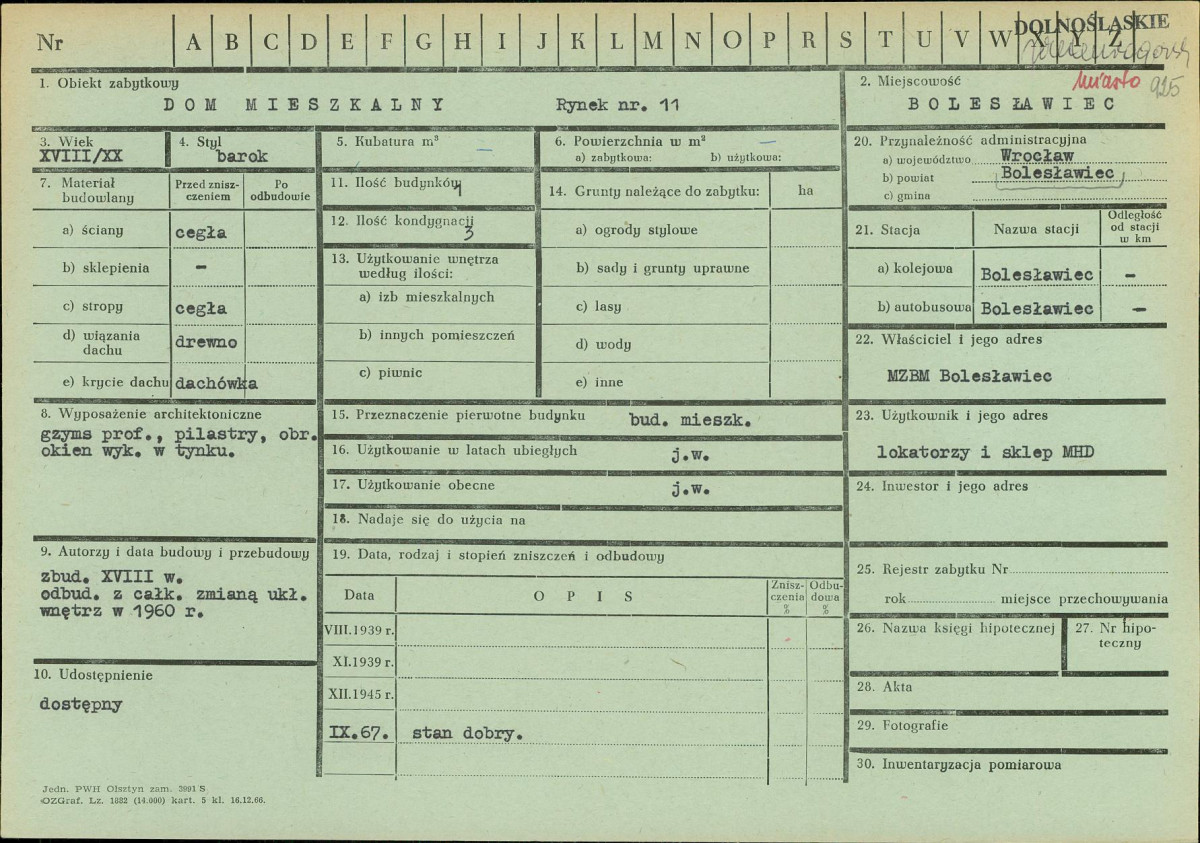 DOLNOŚLĄSKIE
Nr A B C D E F G H I J K L M N O P R S T U V W X Y Z
1. Obiekt zabytkowy
DOM MIESZKALNY Rynek nr. 11
2. Miejscowość
miasto 925
BOLESŁAWIEC
3. Wiek
XVIII/XX
4. Styl
barok
5. Kubatura m³
—
6. Powierzchnia w m² —
a) zabytkowa: b) użytkowa:
7. Materiał budowlany
Przed zniszczeniem
Po odbudowie
a) ściany cegła
b) sklepienia –
c) stropy cegła
d) wiązania dachu drewno
e) krycie dachu dachówka
8. Wyposażenie architektoniczne
gzyms prof., pilastry, obr.
okien wyk. w tynku.
9. Autorzy i data budowy i przebudowy
zbud. XVIII w.
odbud. z całk. zmianą ukł.
wnętrz w 1960 r.
10. Udostępnienie
dostępny
11. Ilość budynków
1
12. Ilość kondygnacji
3
13. Użytkowanie wnętrza
według ilości:
a) izb mieszkalnych
b) innych pomieszczeń
c) piwnic
14. Grunty należące do zabytku: ha
a) ogrody stylowe
b) sady i grunty uprawne
c) lasy
d) wody
e) inne
15. Przeznaczenie pierwotne budynku bud. mieszk.
16. Użytkowanie w latach ubiegłych j.w.
17. Użytkowanie obecne j.w.
18. Nadaje się do użycia na
19. Data, rodzaj i stopień zniszczeń i odbudowy
Data OPIS Zniszczenia % Odbudowa %
VIII.1939 r.
XI.1939 r.
XII.1945 r.
IX.67. stan dobry.
20. Przynależność administracyjna
a) województwo Wrocław
b) powiat Bolesławiec
c) gmina
21. Stacja Nazwa stacji Odległość od stacji w km
a) kolejowa Bolesławiec –
b) autobusowa Bolesławiec –
22. Właściciel i jego adres
MZBM Bolesławiec
23. Użytkownik i jego adres
lokatorzy i sklep MHD
24. Inwestor i jego adres
25. Rejestr zabytku Nr
rok miejsce przechowywania
26. Nazwa księgi hipotecznej
27. Nr hipoteczny
28. Akta
29. Fotografie
30. Inwentaryzacja pomiarowa
Jedn. PWH Olsztyn zam. 3991 S
OZGraf. Lz. 1882 (14.000) kart. 5 kl. 16.12.66.